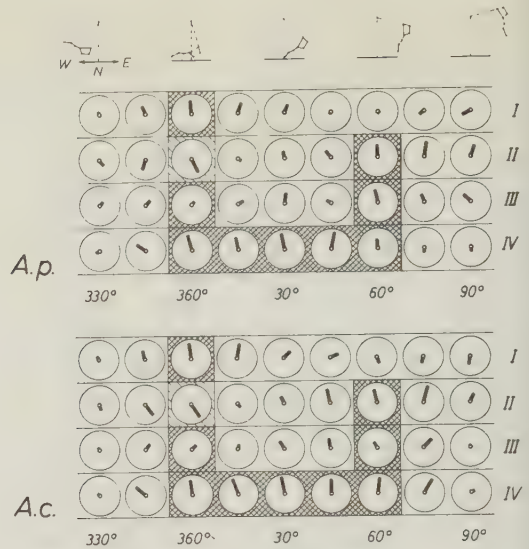 W N E
I
II
III
IV
A.p.
330° 360° 30° 60° 90°
I
II
III
IV
A.c.
330° 360° 30° 60° 90°